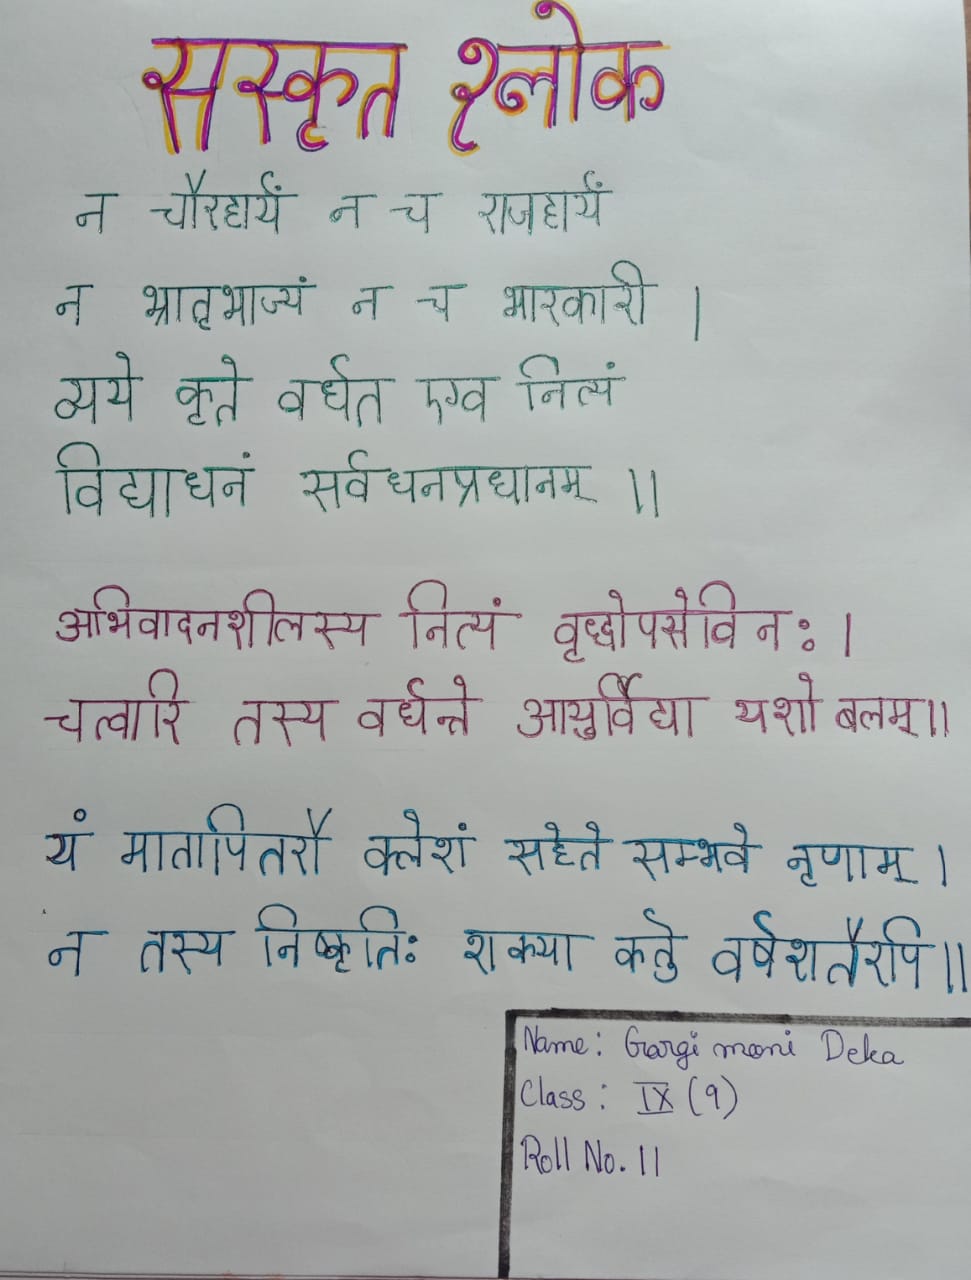 सस्कृत श्लोक
न चौरहार्यं न च राजहार्यं
न भ्रातृभाज्यं न च भारकारी ।
व्यये कृते वर्धत एव नित्यं
विद्याधनं सर्वधनप्रधानम् ॥
अभिवादनशीलस्य नित्यं वृद्धोपसेविनः ।
चत्वारि तस्य वर्धन्ते आयुर्विद्या यशो बलम् ॥
यं मातापितरौ क्लेशं सहेते सम्भवे नृणाम् ।
न तस्य निष्कृतिः शक्या कर्तु वर्षशतैरपि ॥
Name: Gargi moni Deka
Class: IX (9)
Roll No. 11